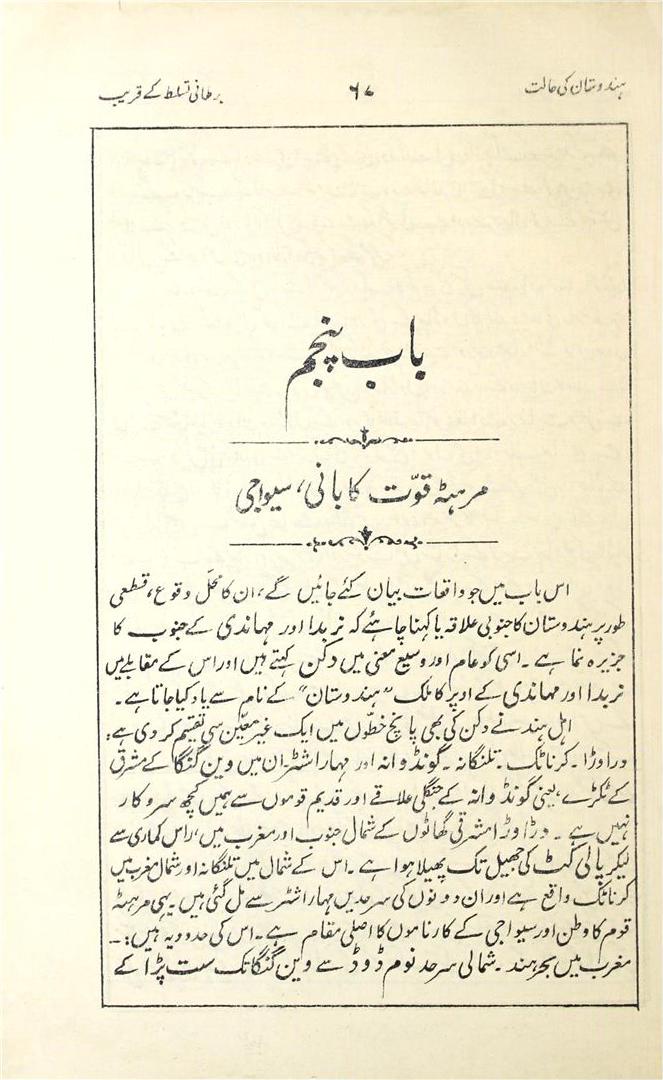 ہندوستان کی حالت
۶۷
برطانی تسلط کے قریب
باب پنجم
مرہٹہ قوّت کا بانی، سیواجی
اس باب میں جو واقعات بیان کئے جائیں گے، ان کا محلّ وقوع، قطعی
طور پر ہندوستان کا جنوبی علاقہ یا کہنا چاہئے کہ نربدا اور مہاندی کے جنوب کا
جزیرہ نما ہے۔ اسی کو عام اور وسیع معنی میں دکن کہتے ہیں اور اس کے مقابلے میں
نربدا اور مہاندی کے اوپر کا ملک "ہندوستان" کے نام سے یاد کیا جاتا ہے۔
اہل ہند نے دکن کی بھی پانچ خطّوں میں ایک غیر معیّن سی تقسیم کر دی ہے:
دراوڑا۔ کرناٹک۔ تلنگانہ۔ گونڈوانہ اور مہاراشٹر ان میں وین گنگا کے مشرق
کے ٹکڑے، یعنی گونڈوانہ کے جنگلی علاقے اور قدیم قوموں سے ہمیں کچھ سروکار
نہیں ہے۔ دڑاوڑا مشرقی گھاٹوں کے شمال جنوب اور مغرب میں، راس کماری سے
لیکر پالی کٹ کی جھیل تک پھیلا ہوا ہے۔ اس کے شمال میں تلنگانہ اور شمال مغرب میں
کرناٹک واقع ہے اور ان دونوں کی سرحدیں مہاراشٹر سے مل گئی ہیں۔ یہی مرہٹہ
قوم کا وطن اور سیواجی کے کارناموں کا اصلی مقام ہے۔ اس کی حدود یہ ہیں:۔
مغرب میں بحر ہند۔ شمالی سرحد نوم ڈوڈ سے وین گنگا تک ست پڑا کے